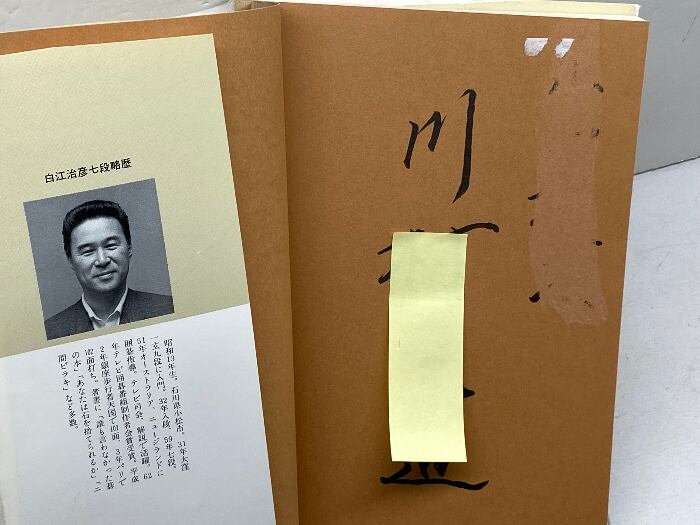 白江治彦七段略歴
昭和13年生。石川県小松市。31年大窪
一玄九段に入門。32年入段、59年七段。
51年オーストラリア、ニュージランドに
囲碁指導。テレビ司会、解説で活躍。62
年テレビ囲碁番組制作者会賞受賞。平成
2年銀座歩行者天国で101面、3年パリで
102面打ち。著書に「誰も言わなかった碁
の本」「あなたは石を捨てられるか」「二
間ビラキ」など多数。
川